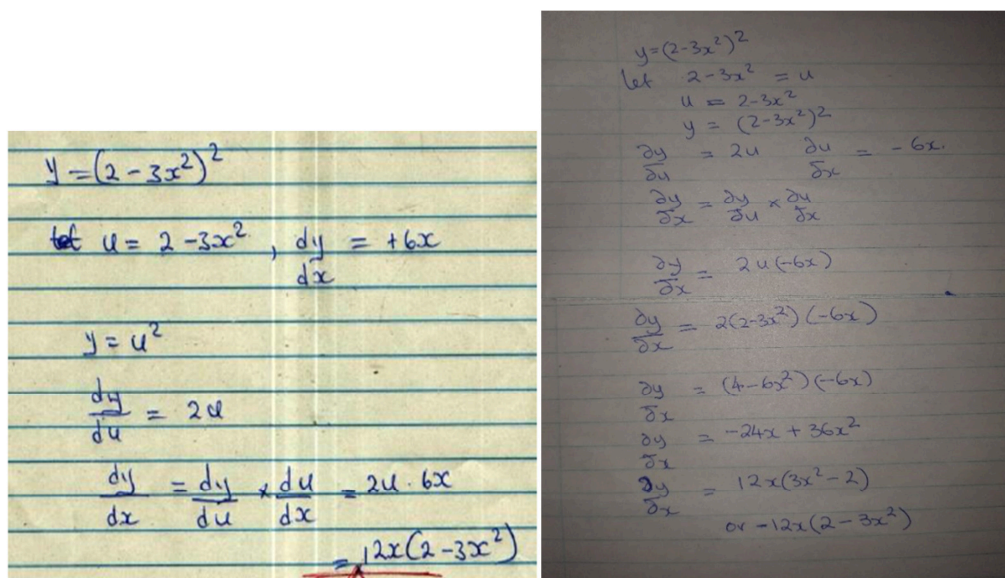 y = (2 - 3x²)²
let u = 2 - 3x², dy/dx = +6x
y = u²
dy/du = 2u
dy/dx = dy/du × du/dx = 2u · 6x
= 12x(2 - 3x²)
y = (2-3x²)²
let 2-3x² = u
u = 2-3x²
y = (2-3x²)²
∂y/∂u = 2u ∂u/∂x = -6x.
∂y/∂x = ∂y/∂u × ∂u/∂x
∂y/∂x = 2u(-6x)
∂y/∂x = 2(2-3x²)(-6x)
∂y/∂x = (4-6x²)(-6x)
∂y/∂x = -24x + 36x²
∂y/∂x = 12x(3x²-2)
or -12x(2-3x²)